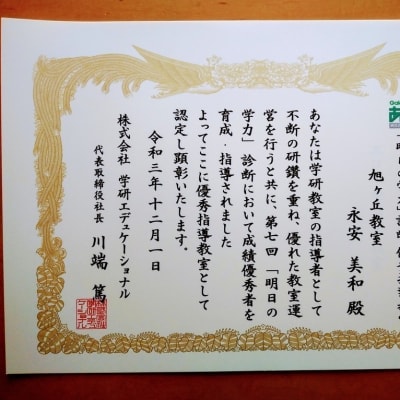 旭ヶ丘教室
永安 美和 殿
あなたは学研教室の指導者として
不断の研鑽を重ね、優れた教室運
営を行うと共に、第七回「明日の
学力」診断において成績優秀者を
育成・指導されました
よってここに優秀指導教室として
認定し顕彰いたします。
令和三年十二月一日
株式会社 学研エデュケーショナル
代表取締役社長 川端 篤